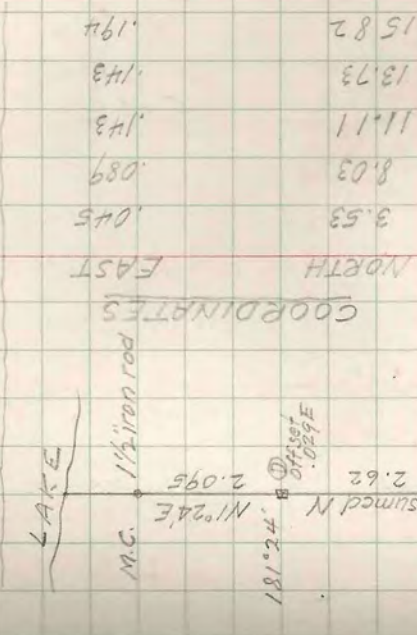 COORDINATES
NORTH EAST
3.53 .045
8.03 .089
11.11 .143
13.73 .143
15 82 .194
LAKE
M.C. 1 1/2" iron rod
N1°24'E
2.095
181°24' ①
offset
.029E
sumed N
2.62